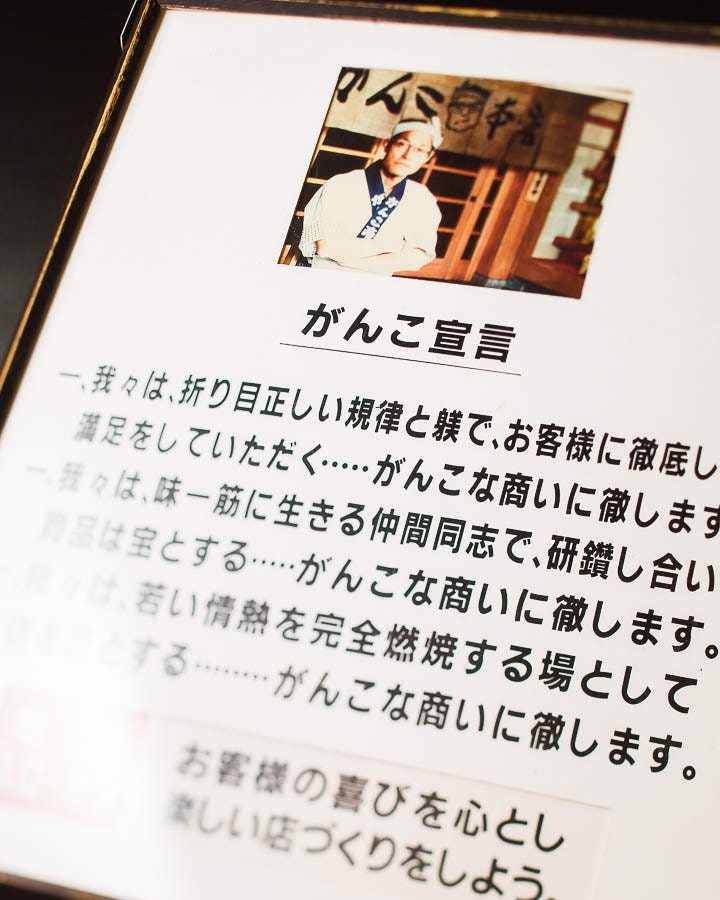 がんこ 本舗
がんこ
がんこ宣言
一、我々は、折り目正しい規律と躾で、お客様に徹底し
満足をしていただく……がんこな商いに徹します
一、我々は、味一筋に生きる仲間同志で、研鑽し合い
商品は宝とする……がんこな商いに徹します。
一、我々は、若い情熱を完全燃焼する場として
とする………がんこな商いに徹します。
お客様の喜びを心とし
楽しい店づくりをしよう。